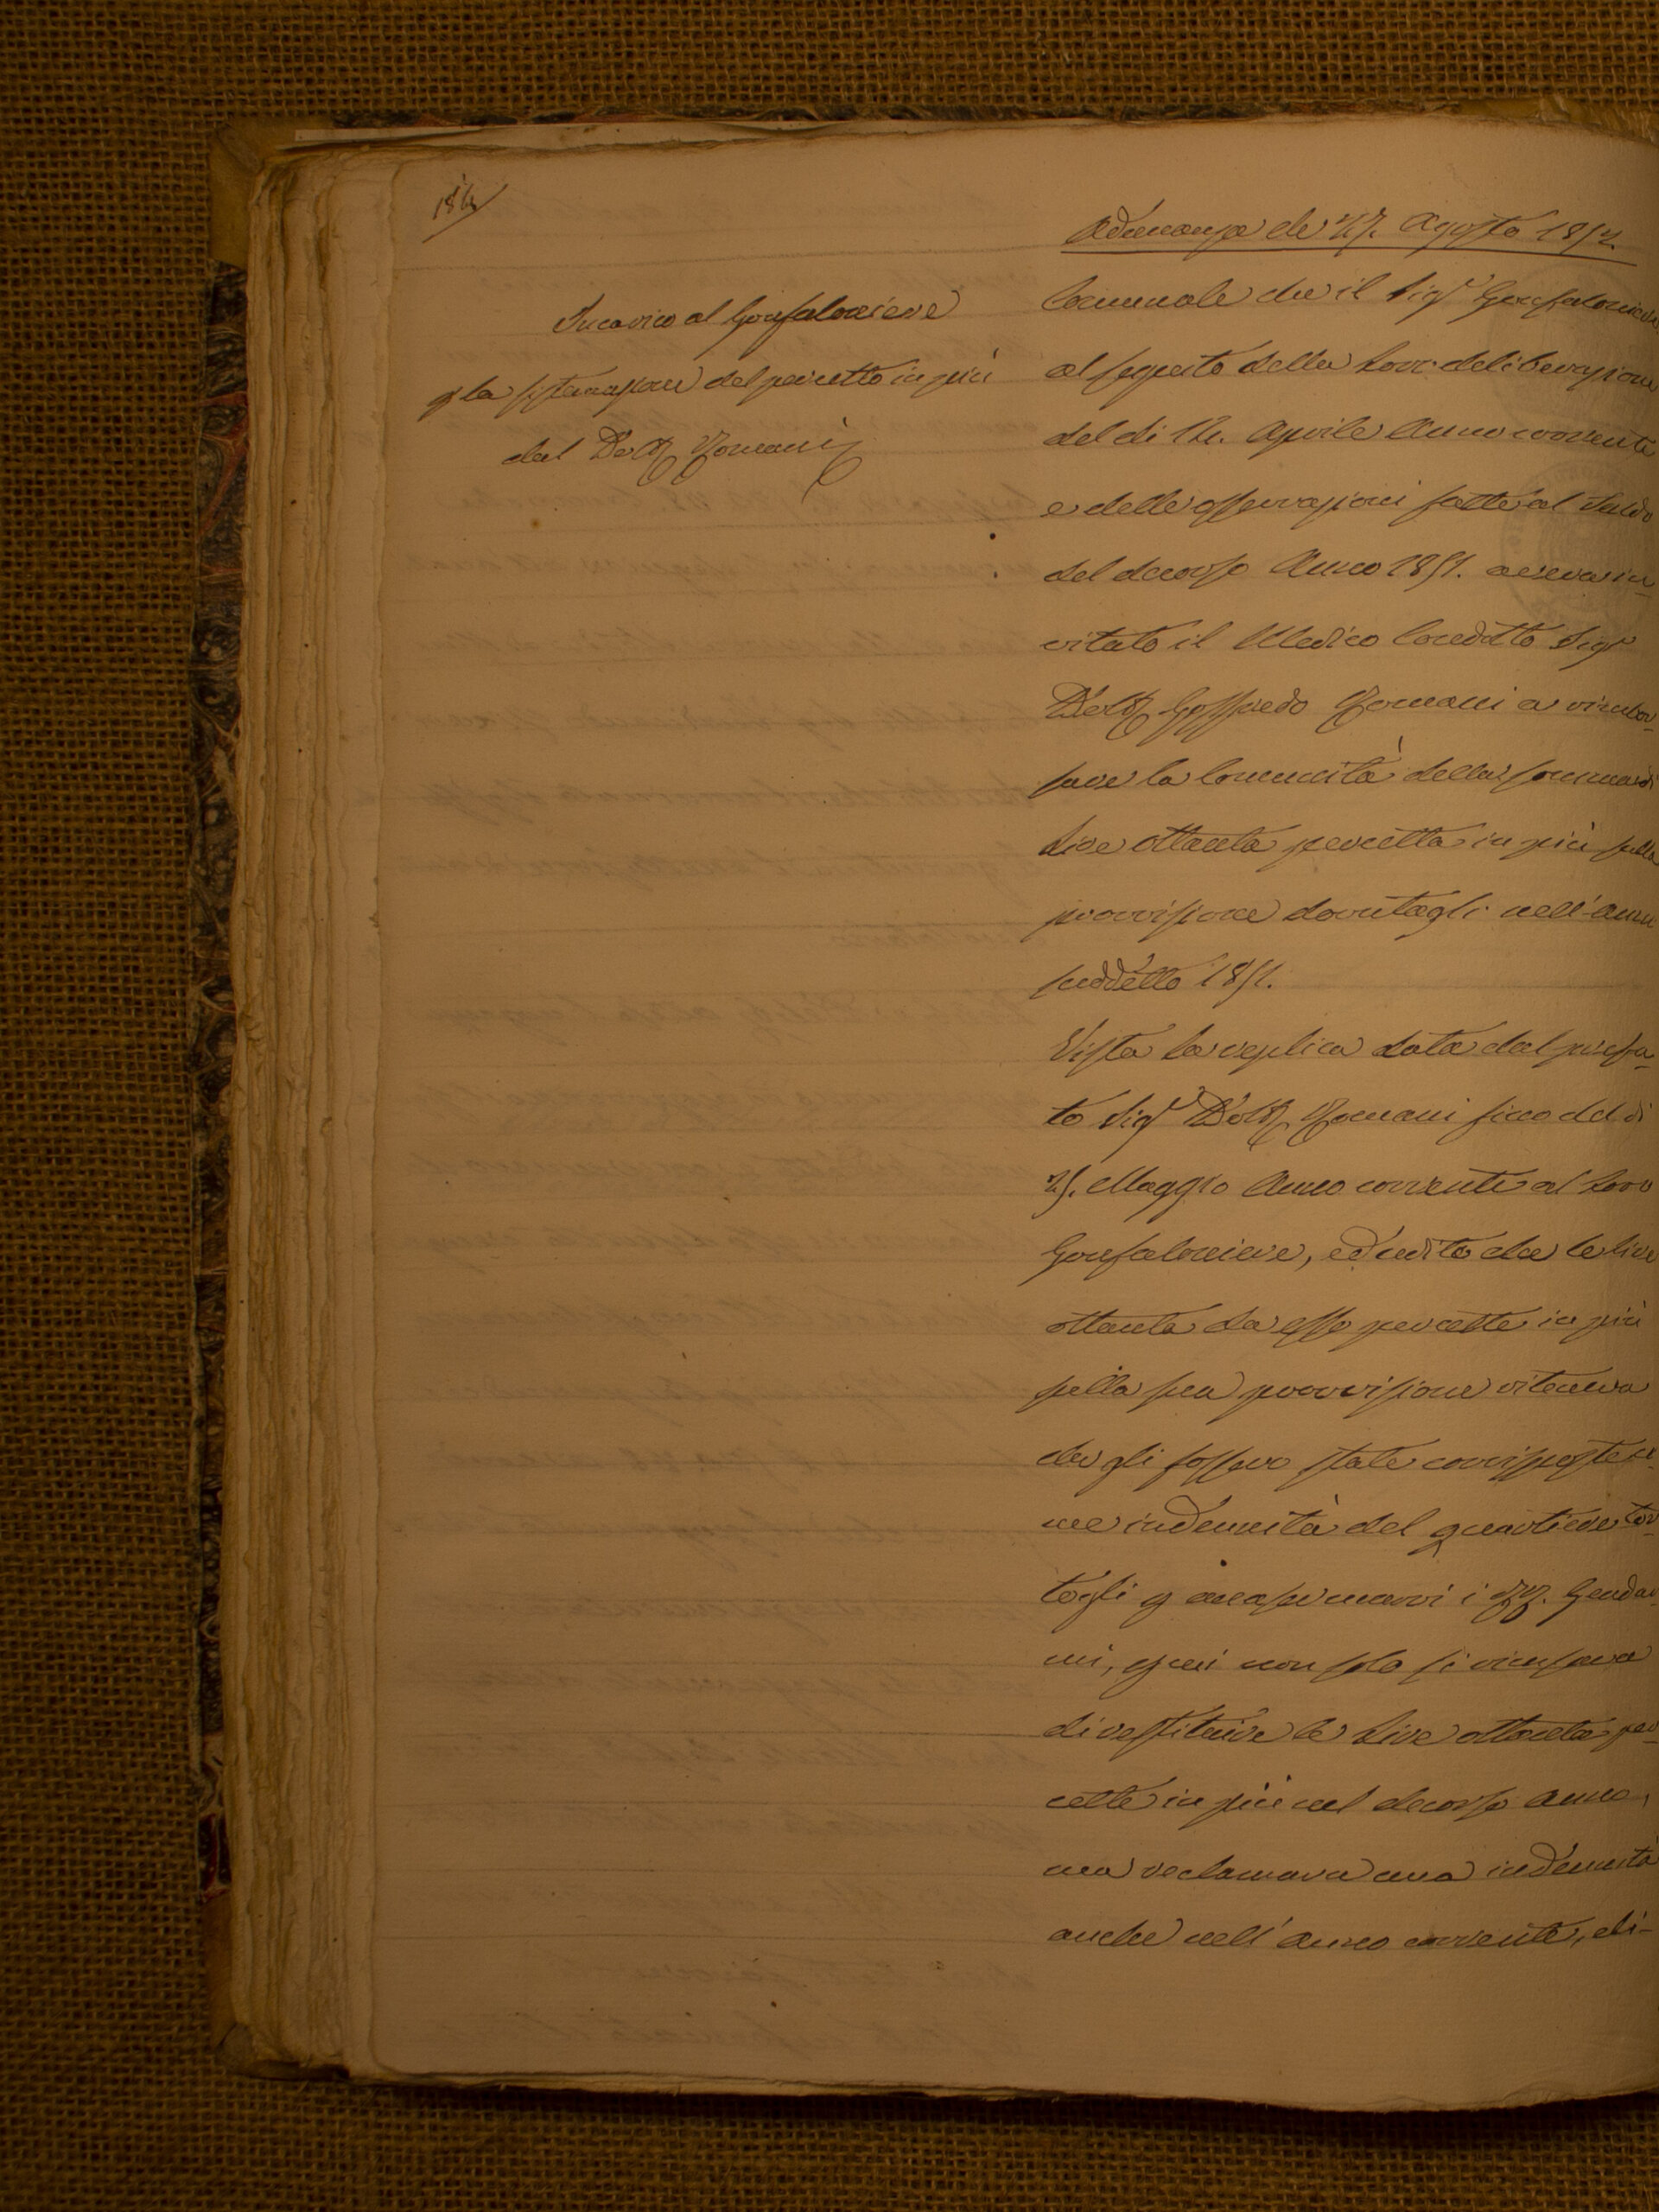 184
Adunanza de 27. Agosto 1852
Incarico al Gonfaloniere
p la sistemazione del percetto in più
dal Dott. Romani
Comunale che il Sigr Gonfaloniere
al seguito della Loro deliberazione
del di 12. Aprile Anno corrente
e delle osservazioni fatte al Saldo
del decorso Anno 1851. aveva in-
vitato il Medico Condotto Sigr
Dott. Goffredo Romani a rimbor-
sare la Comunità della somma di
Lire ottanta percetta in più sulla
provvisione dovutagli nell'anno
suddetto 1851.
Vista la replica data dal prefa-
to Sigr Dott. Romani sino del di
25. Maggio Anno corrente al Loro
Gonfaloniere, ed udito che le lire
ottanta da esso percette in più
sulla sua provvisione riteneva
che gli fossero state corrisposte co-
me indennità del quartiere tol-
togli p accasermarvi i Gendar-
mi, quei non solo si ricusava
di restituire le Lire ottanta per-
cette in più nel decorso anno,
ma reclamava una indennità
anche nell'anno corrente, di-